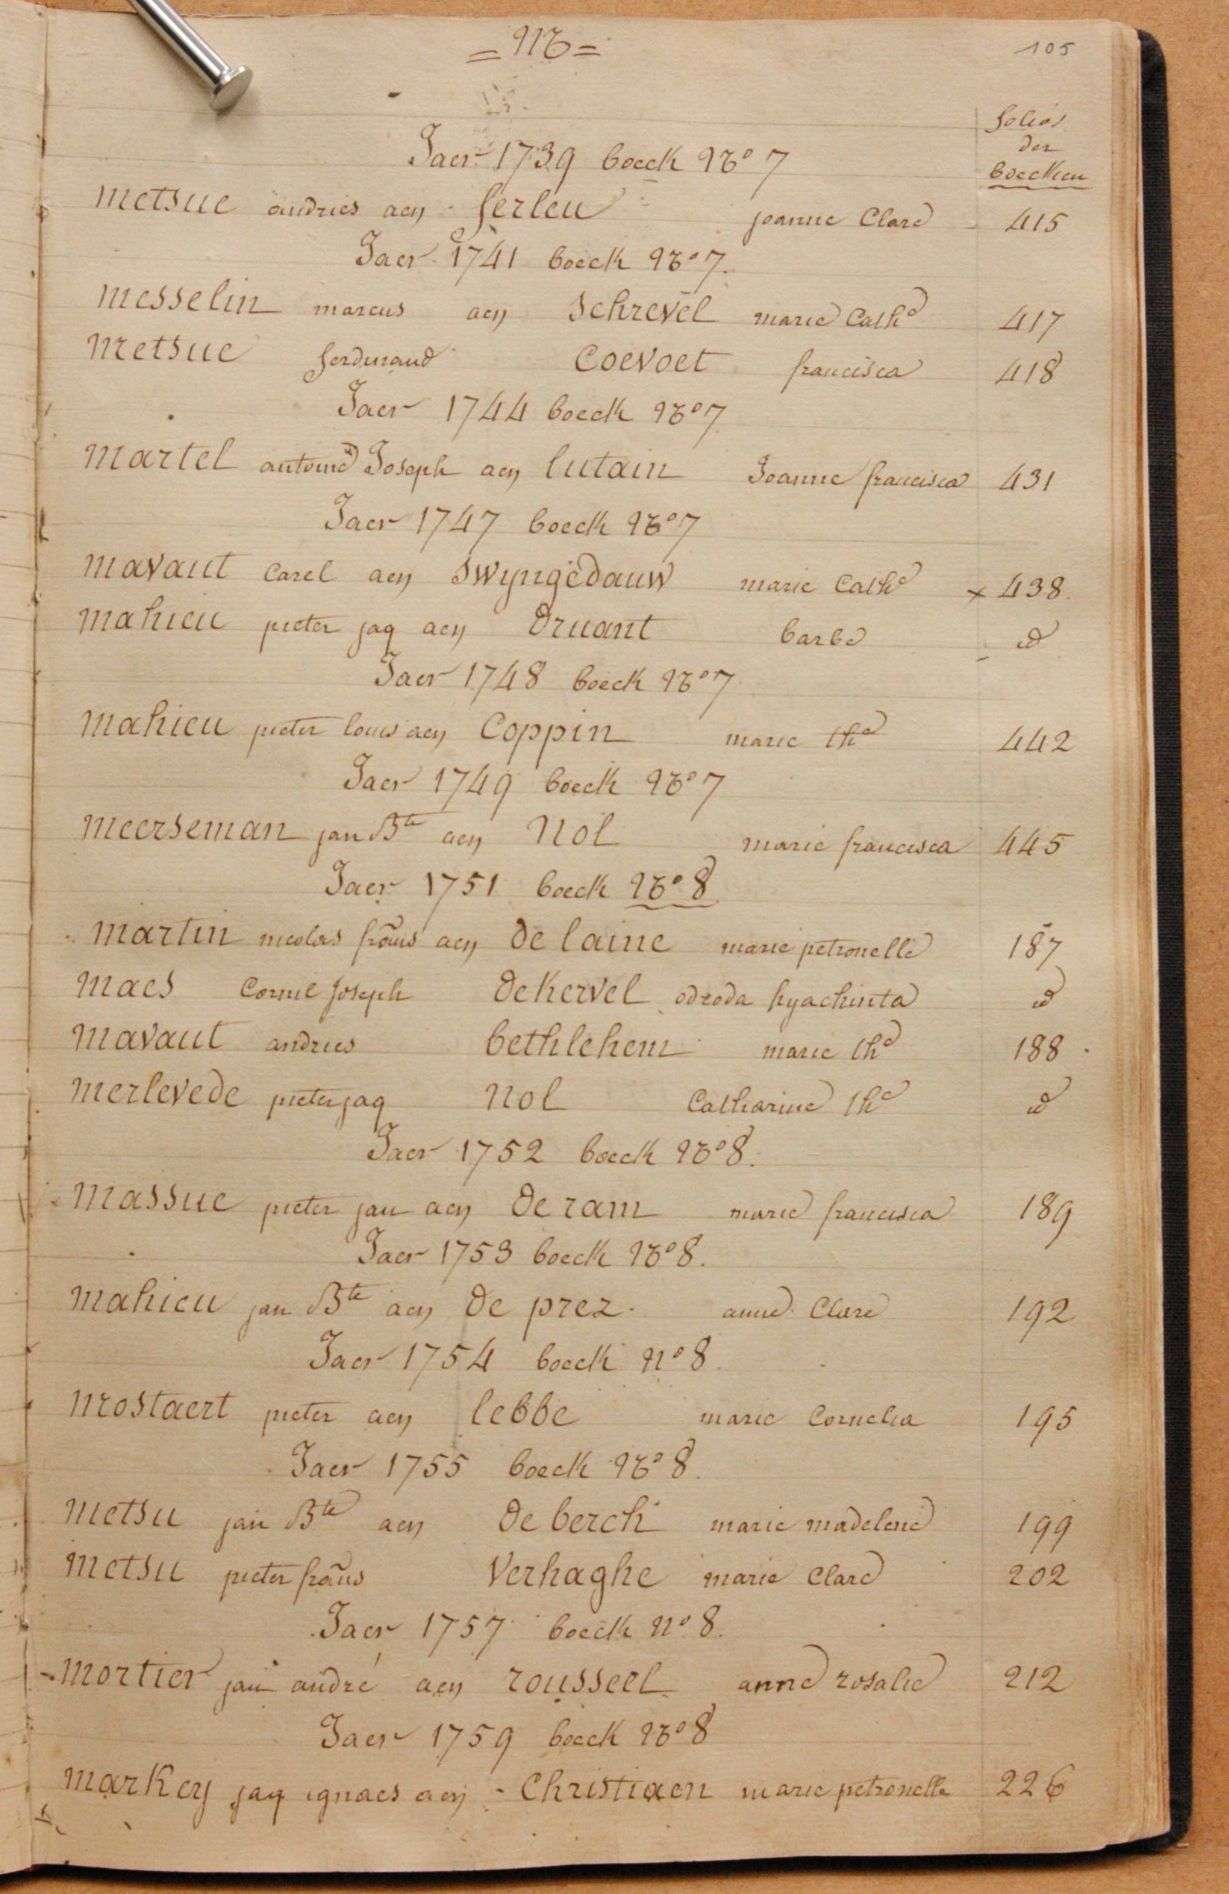 = M =
105
folios
der
boecken
Jaer 1739 boeck No 7
metsue andries aen ferleu joanne Clare 415
Jaer 1741 boeck No 7.
messelin marcus aen schrevel marie Cathe 417
metsue ferdinand Coevoet francisca 418
Jaer 1744 boeck No 7
martel antoine Joseph aen lutain Joanne francisca 431
Jaer 1747 boeck No 7
mavaut Carel aen swyngedauw marie Cathe x 438
mahieu pieter jaq aen druant barbe id
Jaer 1748 boeck No 7
mahieu pieter louis aen Coppin marie the 442
Jaer 1749 boeck No 7
meerseman jan Bte aen Nol marie francisca 445
Jaer 1751 boeck No 8
martin nicolas frans aen de laine marie petronelle 187
maes Cornil Joseph dekervel odroda hyachinta id
mavaut andries bethlehem marie the 188
merlevede pieter jaq Nol Catharine the id
Jaer 1752 boeck No 8.
massue pieter jan aen de ram marie francisca 189
Jaer 1753 boeck No 8.
mahieu jan Bte aen de prez anne Clare 192
Jaer 1754 boeck No 8
mostaert pieter aen lebbe marie Cornelia 195
Jaer 1755 boeck No 8.
metsu jan Bte aen de berch marie madelene 199
metsu pieter frans Verhaghe marie Clare 202
Jaer 1757 boeck No 8.
mortier jan andré aen rousseel anne rosalie 212
Jaer 1759 boeck No 8
markey jaq ignaes aen - Christiaen marie petronelle 226